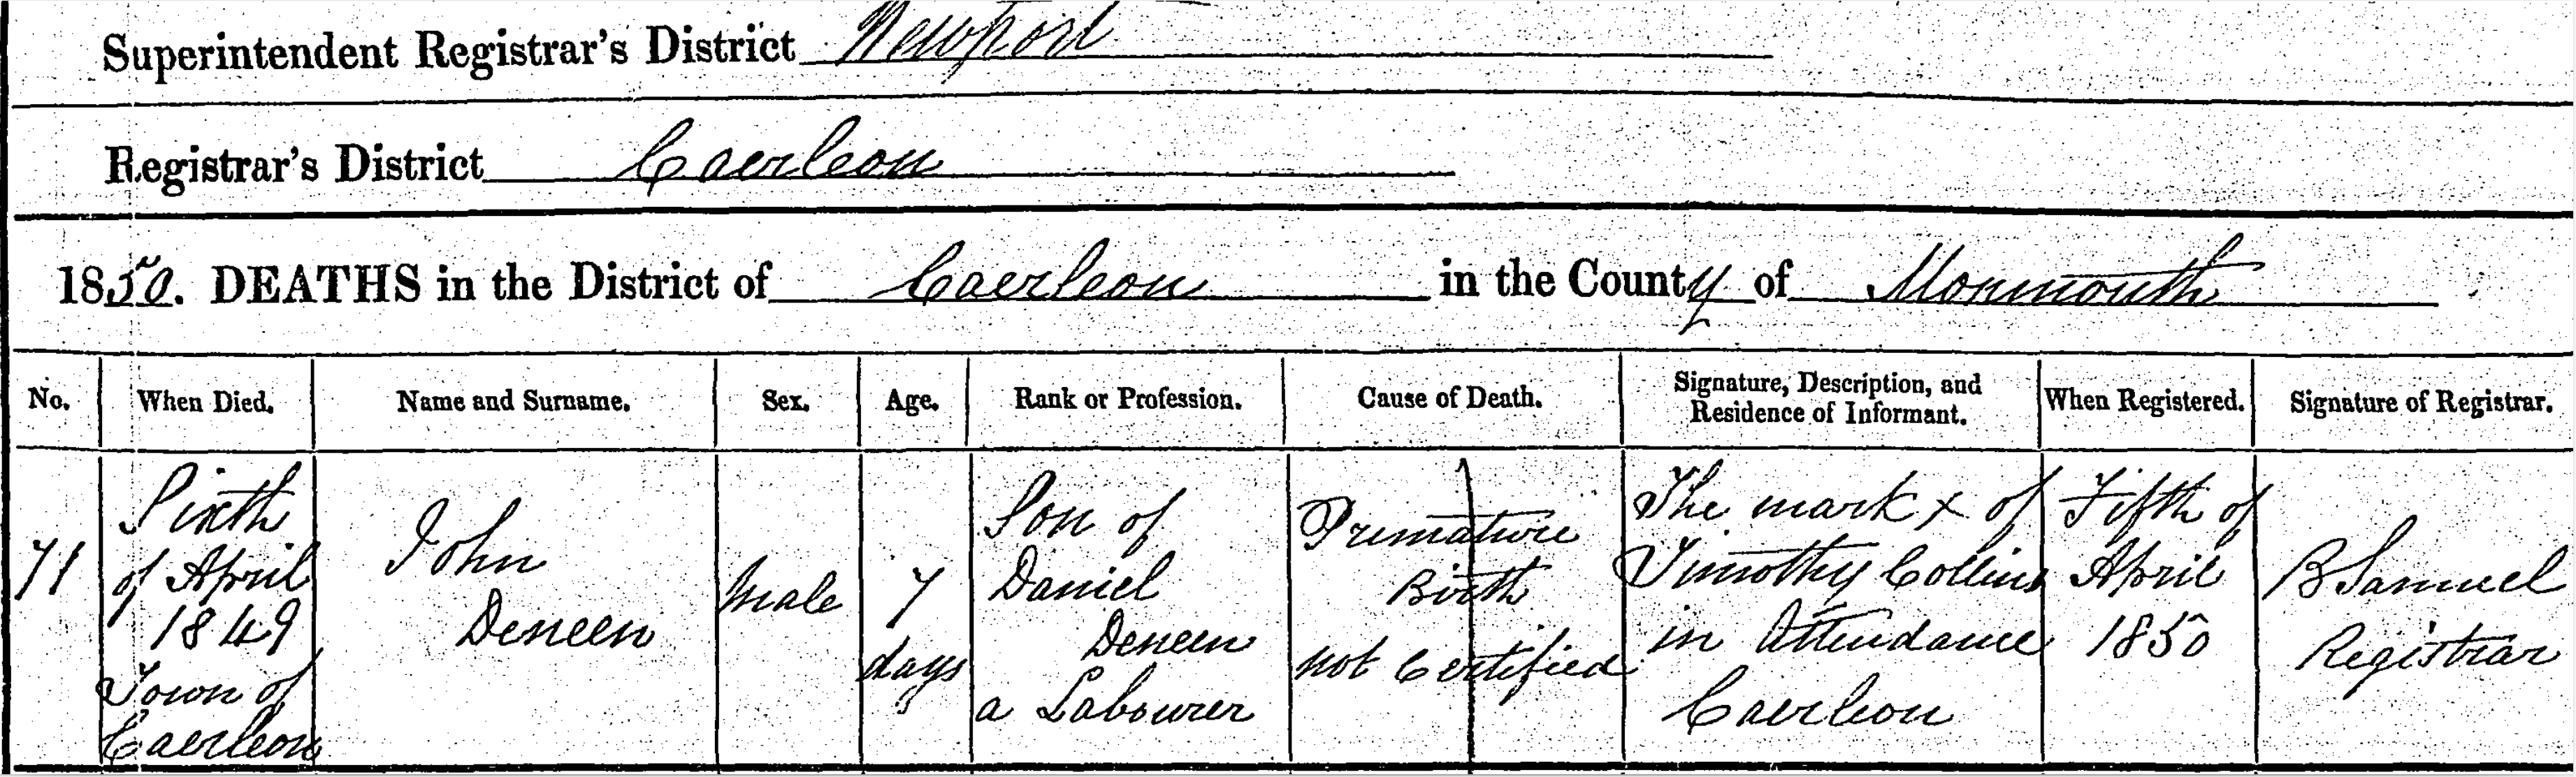 Superintendent Registrar's District Newport
Registrar's District Caerleon
1850. DEATHS in the District of Caerleon in the County of Monmouth
No. When Died. Name and Surname. Sex. Age. Rank or Profession. Cause of Death. Signature, Description, and Residence of Informant. When Registered. Signature of Registrar.
71
Sixth
of April
1849
Town of
Caerleon
John
Deneen
Male
7
days
Son of
Daniel
Deneen
a Labourer
Premature
Birth
not Certified
The mark x of
Timothy Collins
in Attendance
Caerleon
Fifth of
April
1850
B Samuel
Registrar